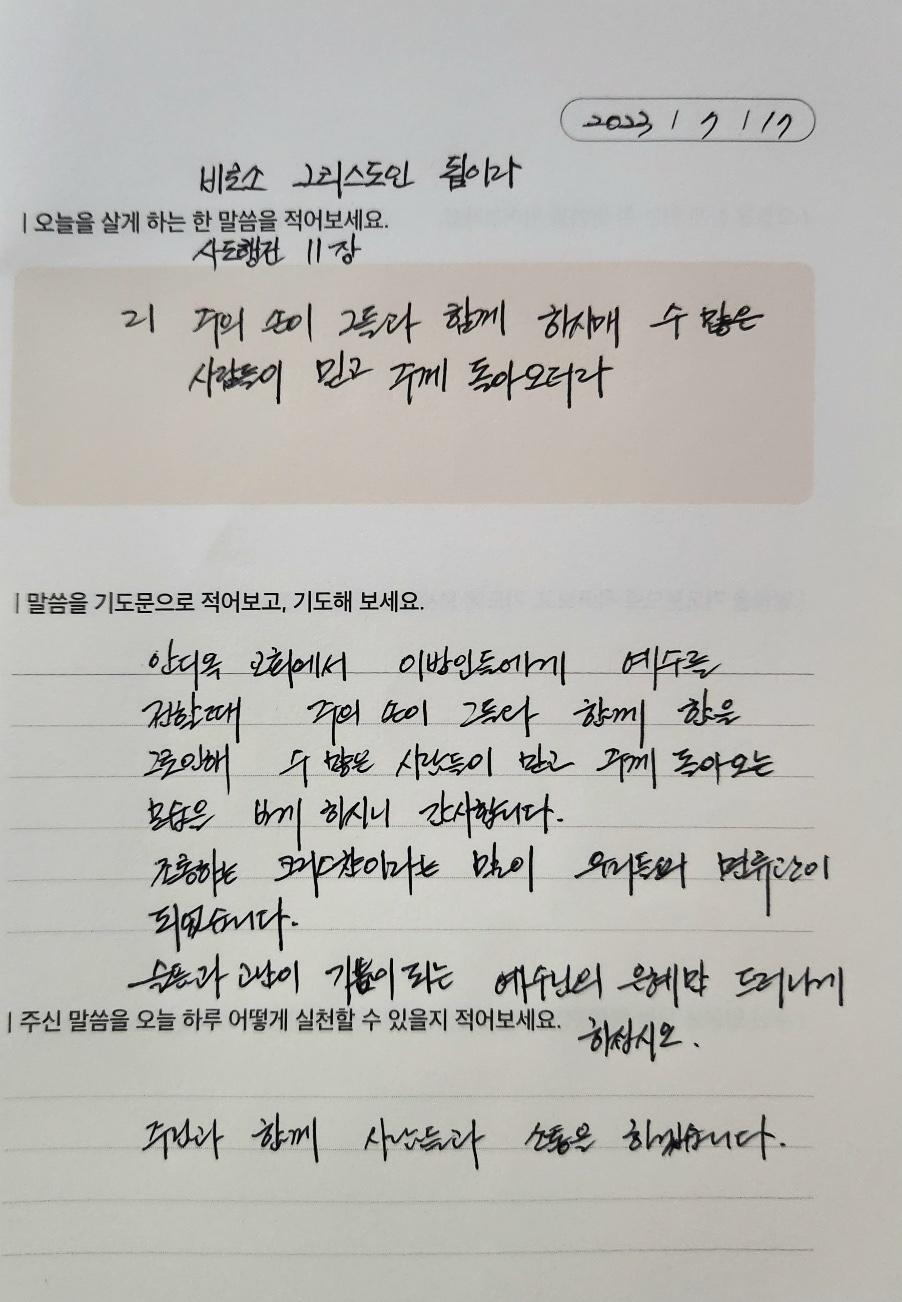 2023 / 7 / 17
비로소 그리스도인 됨이라
| 오늘을 살게 하는 한 말씀을 적어보세요.
사도행전 11장
21 주의 손이 그들과 함께 하시매 수 많은
사람들이 믿고 주께 돌아오더라
| 말씀을 기도문으로 적어보고, 기도해 보세요.
안디옥 교회에서 이방인들에게 예수를
전할때 주의 손이 그들과 함께 함을
그로인해 수 많은 사람들이 믿고 주께 돌아오는
모습을 보게 하시니 감사합니다.
조롱하는 크리스챤이라는 말이 우리들의 면류관이
되었습니다.
슬픔과 고난이 기쁨이 되는 예수님의 은혜만 드러나게
| 주신 말씀을 오늘 하루 어떻게 실천할 수 있을지 적어보세요.
하십시오.
주님과 함께 사람들과 소통을 하겠습니다.